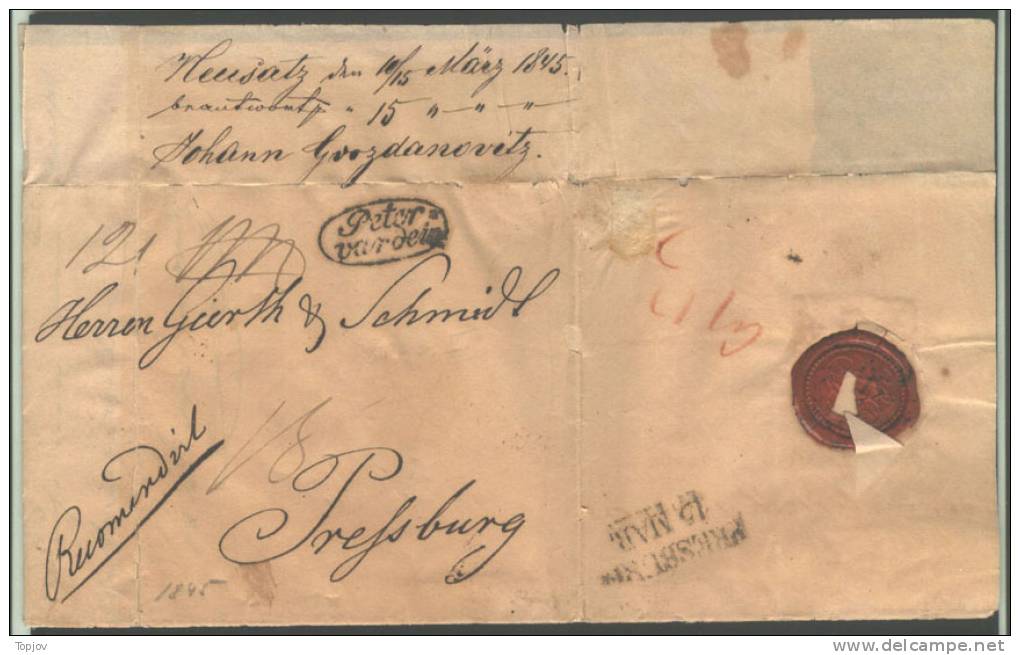 Neusatz den 10/15 März 1845.
beantwort " 15 " — " — "
Johann Gvozdanovitz.
Peter=
vardein
121
Herren Gierth & Schmidt
18
Recomendirt
Preſsburg
1845
PRESBURG
15 MAR.
Topjov
www.delcampe.net